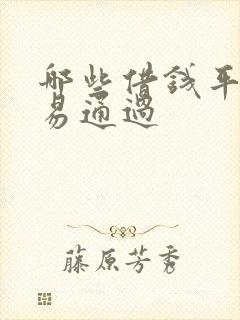 哪些借钱平
易通过
藤原芳秀